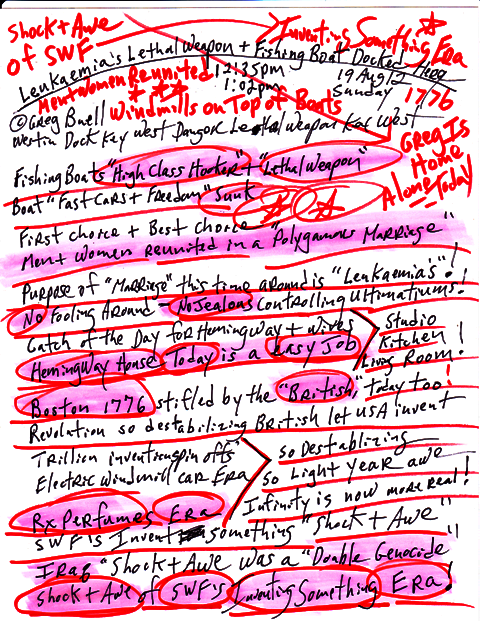 Shock + Awe
of SWF
Inventing Something Era
Leukaemia's Lethal Weapon + Fishing Boat Docked Here
Men + Women Reunited
12:35pm
1:02pm
19 Aug 12
Sunday
1776
Windmills on Top of Boats
© Greg Buell
Westin Dock Key West Lethal Weapon Key West
Greg Is
Home
Alone
Today
Fishing Boats "High Class Hooker" + "Lethal Weapon"
Boat "Fast Cars + Freedom" Sunk
First choice + Best choice
Men + Women Reunited in a "Polygamous Marriage"
Purpose of "Marriage" this time around is "Leukaemia's"!
No Fooling Around - No Jealous Controlling Ultimatiums!
Catch of the Day for Hemingway + Wives
Hemingway House Today is a Easy Job
Studio
Kitchen
Living Room!
Boston 1776 stifled by the "British," today too!
Revolution so destabilizing British let USA invent
Trillion invention spin offs
Electric Windmill car Era
So Destablizing
So Light Year awe
Infinity is now more real!
Rx Perfumes Era
SWF's Invent something "Shock + Awe"
Iraq "Shock + Awe was a "Double Genocide"
Shock + Awe of SWF's Inventing Something Era!